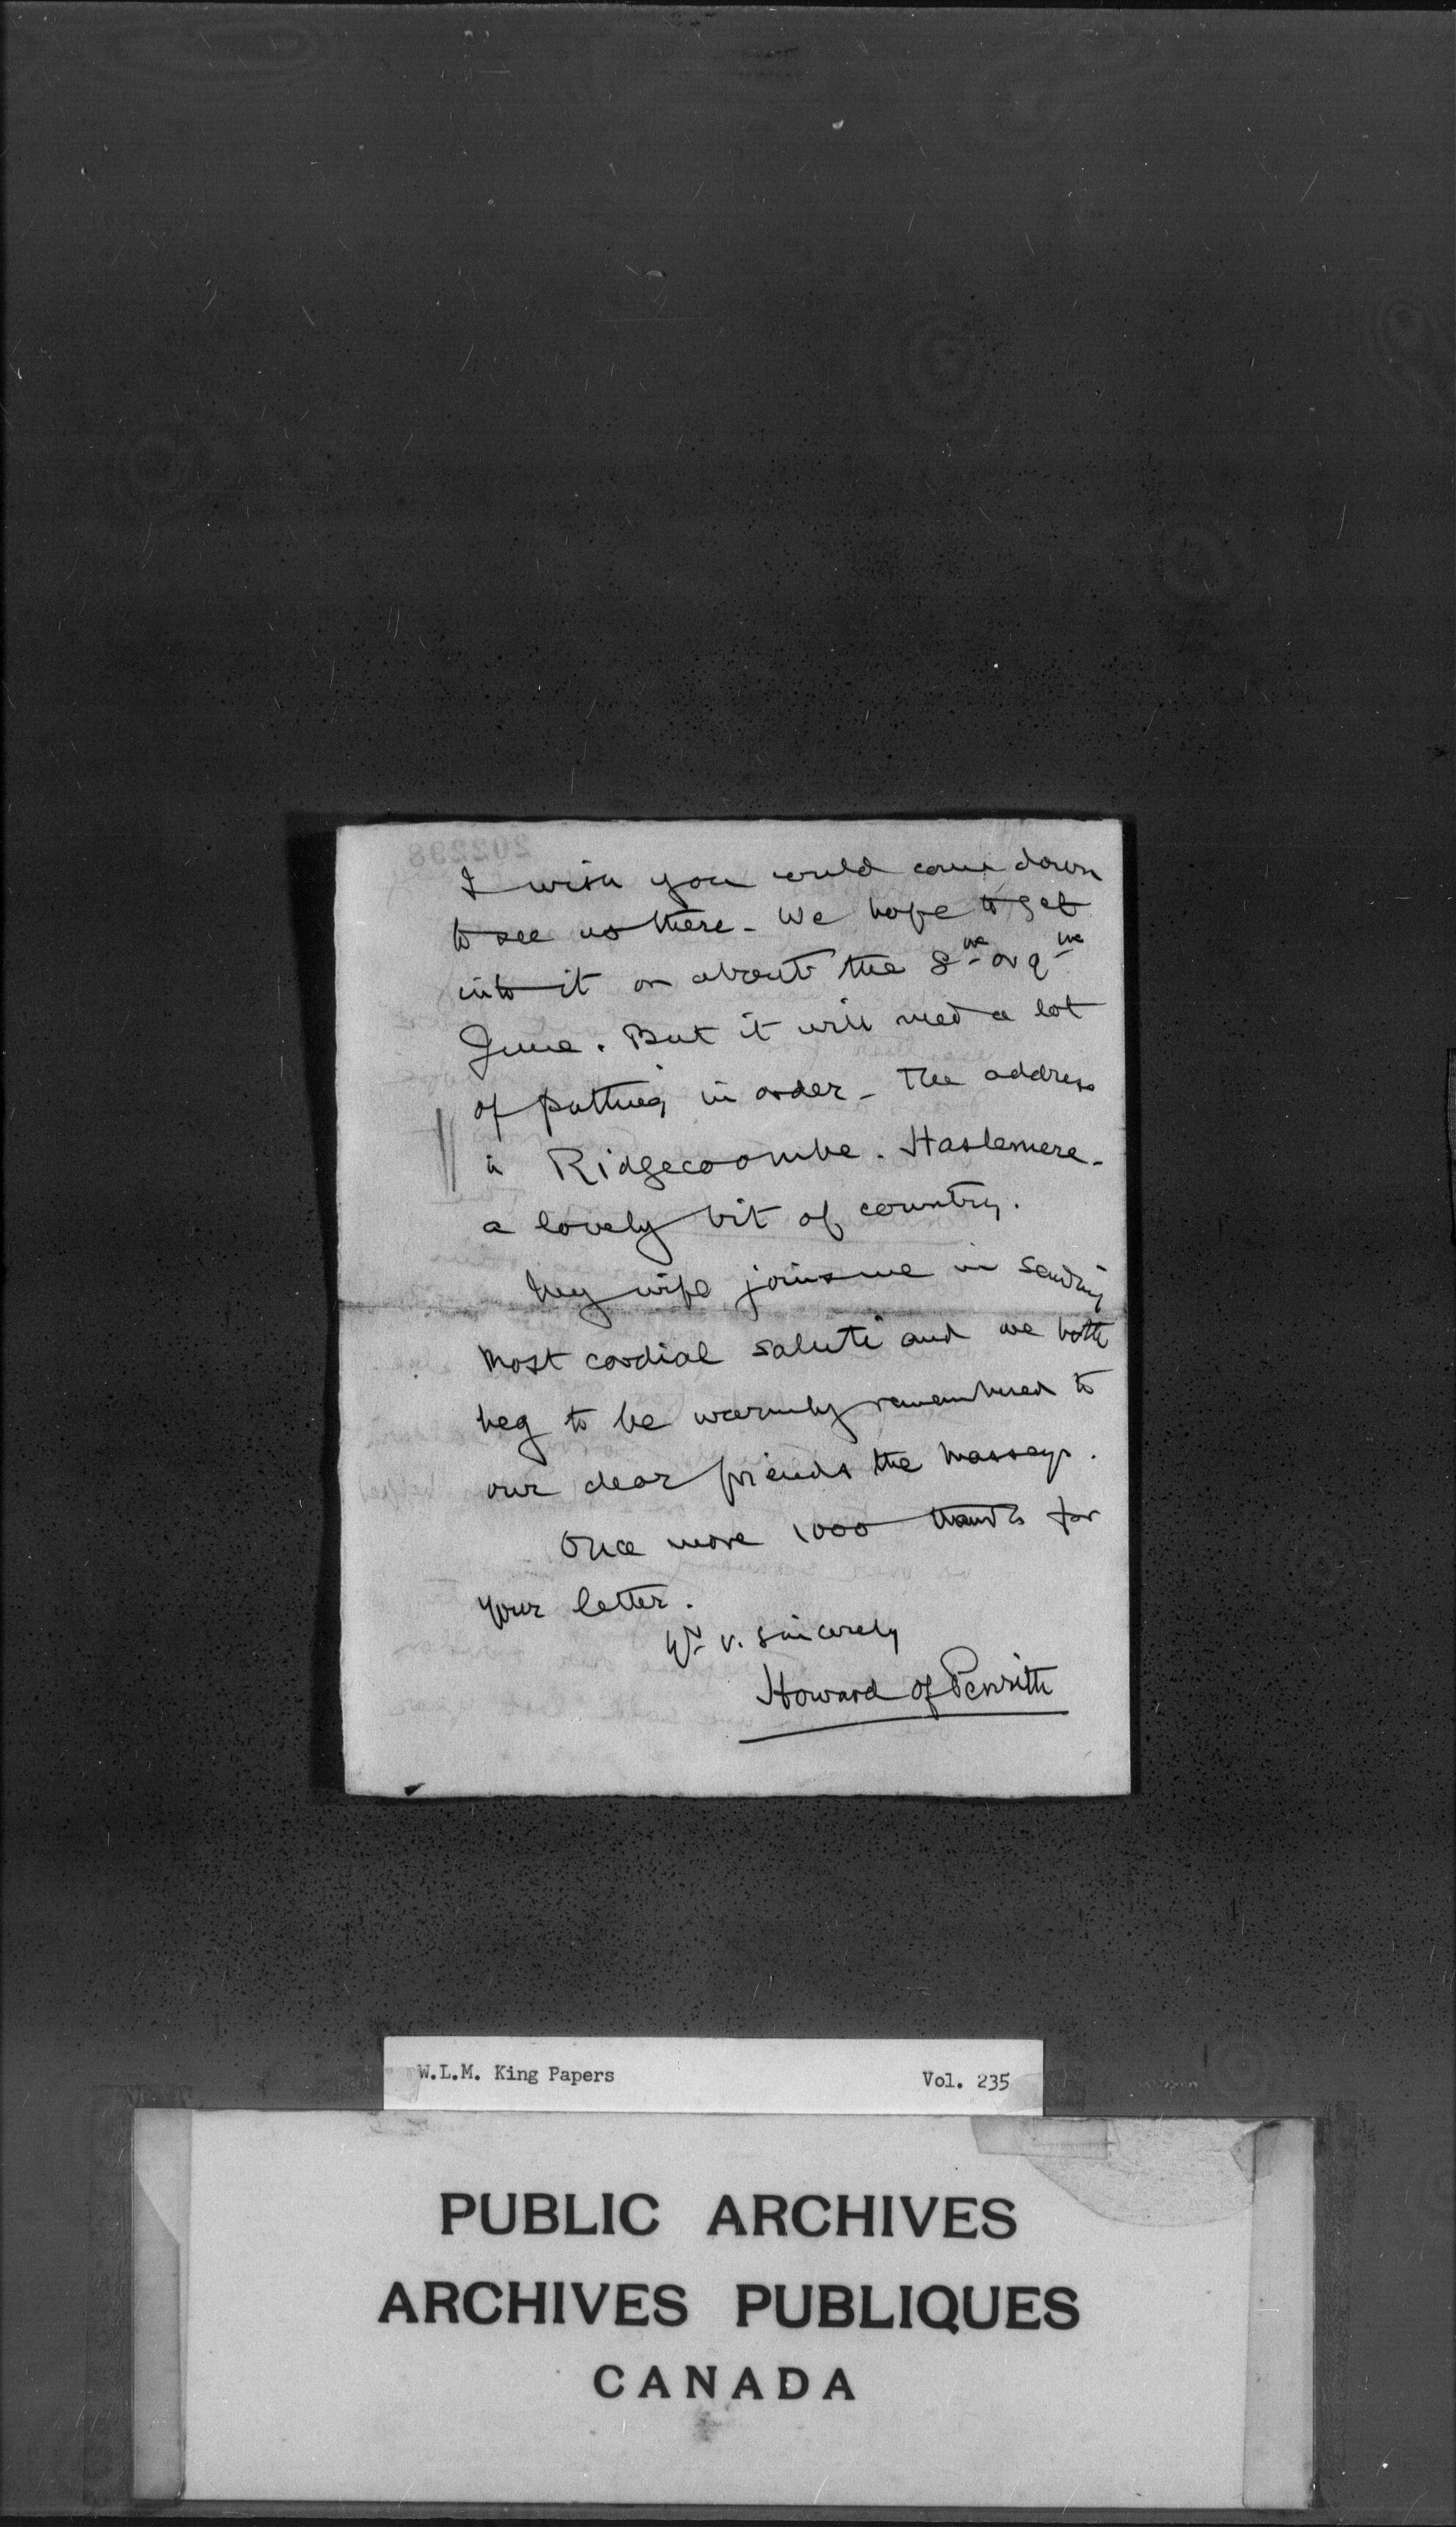 I wish you could come down
to see us there - We hope to get
into it on about the 8th or 9th
June. But it will need a lot
of putting in order - The address
is Ridgecoombe. Haslemere -
a lovely bit of country.
My wife joins me in sending
most cordial saluti and we both
beg to be warmly remembered to
our dear friends the Masseys.
Once more 1000 thanks for
your letter.
Yrs v. sincerely
Howard of Penrith
W.L.M. King Papers Vol. 235
PUBLIC ARCHIVES
ARCHIVES PUBLIQUES
CANADA